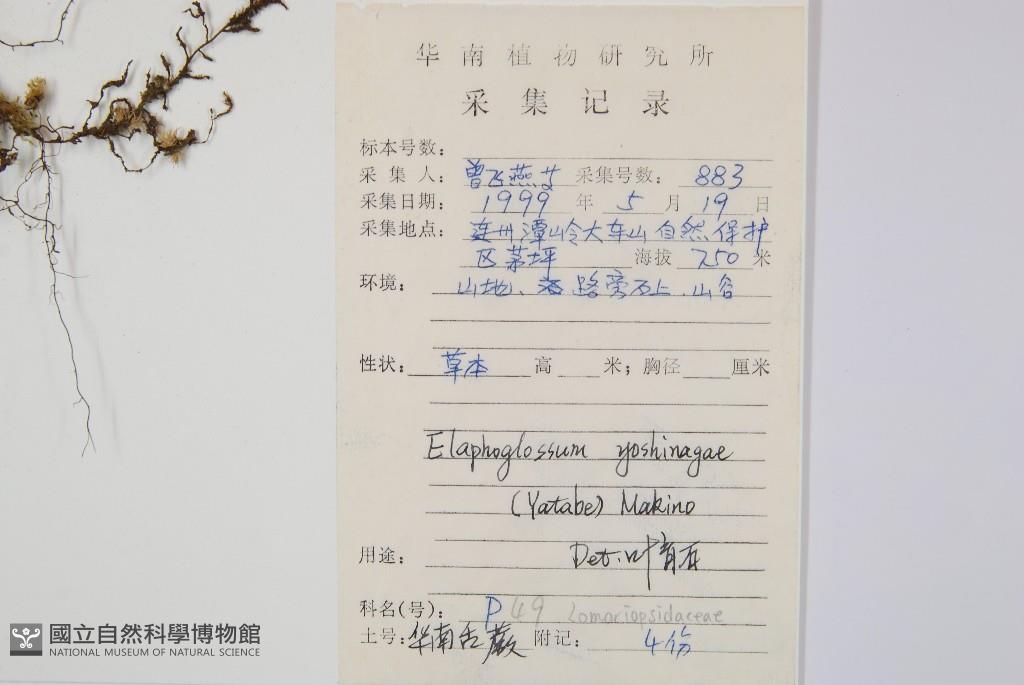 华南植物研究所
采集记录
标本号数：
采集人：曾飞燕 采集号数：883
采集日期：1999年5月19日
采集地点：连州潭岭大东山自然保护
区茅坪 海拔 750米
环境：山地、路旁石上、山谷
性状：草本 高 米；胸径 厘米
Elaphoglossum yoshinagae
(Yatabe) Makino
用途： Det. 叶育石
科名(号)：P49 Lomariopsidaceae
土号：华南舌蕨 附记：4份
國立自然科學博物館
NATIONAL MUSEUM OF NATURAL SCIENCE